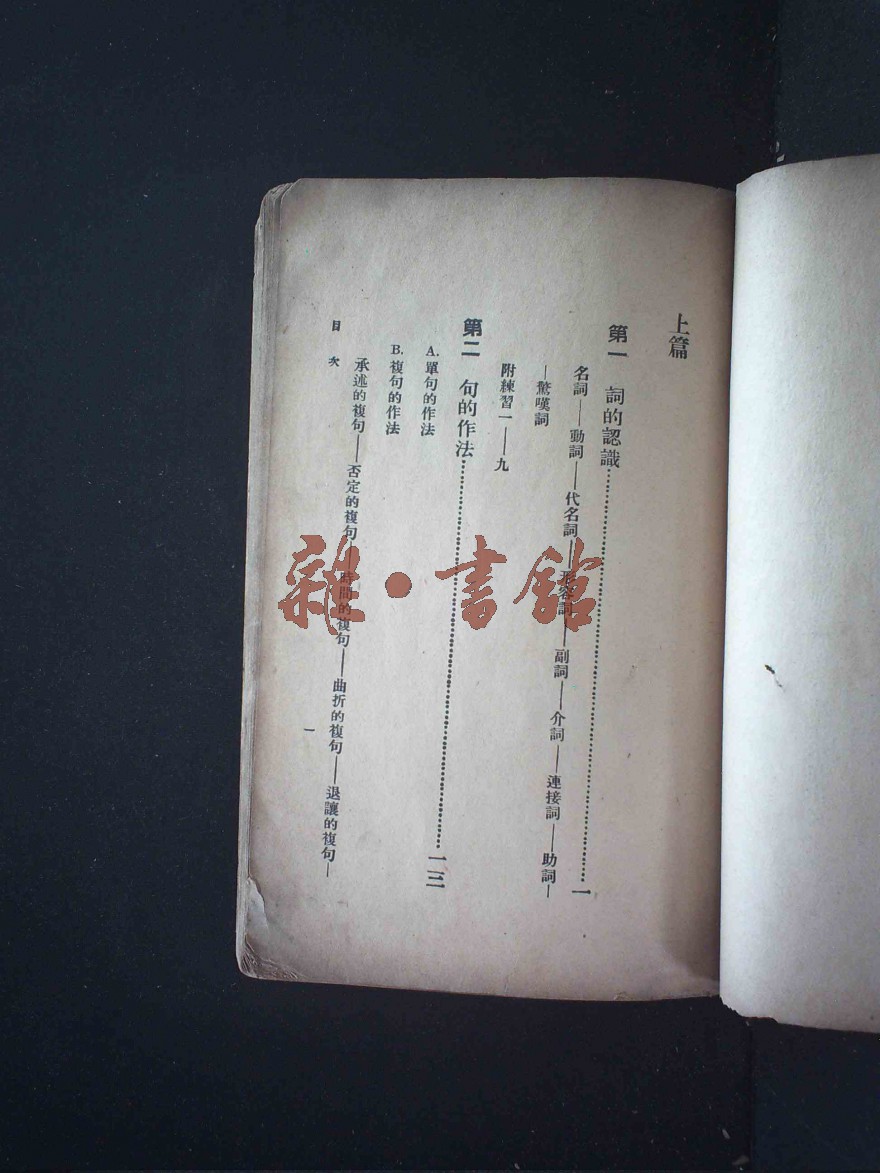 上篇
第一 詞的認識……一
名詞——動詞——代名詞——形容詞——副詞——介詞——連接詞——助詞—
—驚嘆詞
附練習一——九
第二 句的作法……一三
A. 單句的作法
B. 複句的作法
承述的複句——否定的複句——時間的複句——曲折的複句——退讓的複句—
目次
一
雜·書館